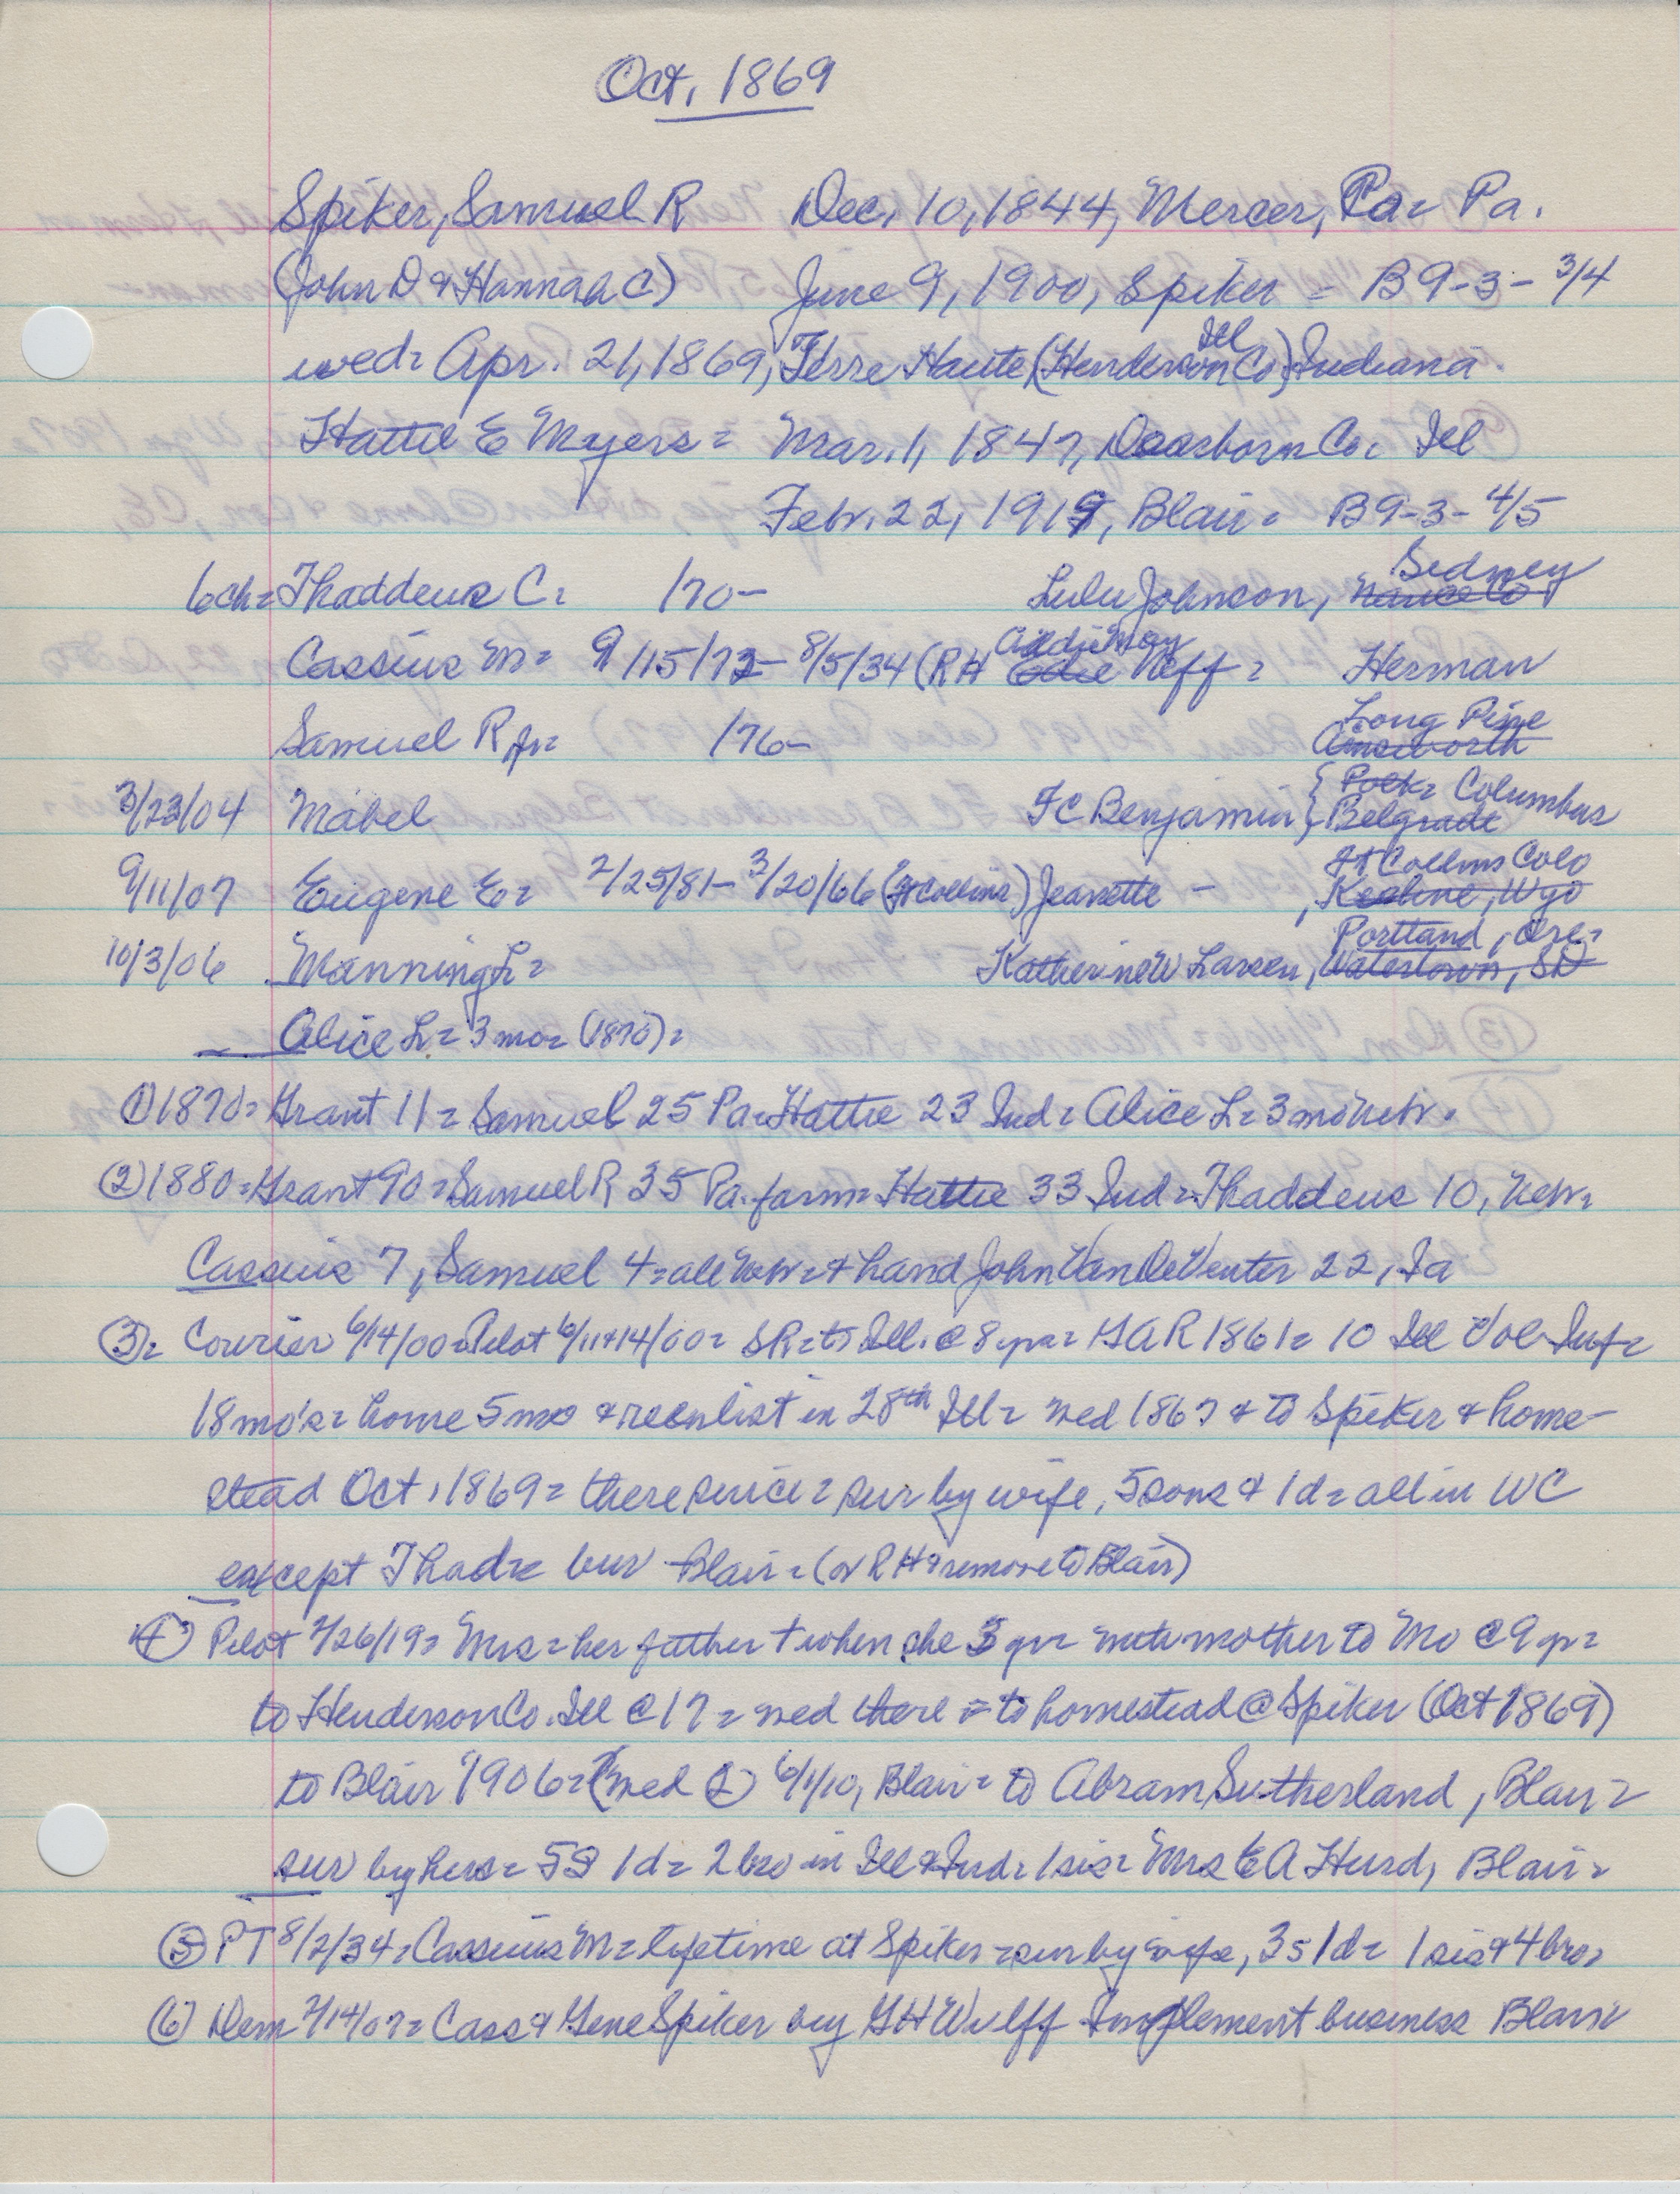 Oct, 1869
Spiker, Samuel R Dec. 10, 1844, Mercer, Pa= Pa.
(John D & Hannah C) June 9, 1900, Spiker = B9-3-3/4
Ill
wed= Apr. 21, 1869, Terre Haute (Henderson Co) Indiana.
Hattie E Myers= Mar. 1, 1847, Dearborn Co. Ill
Febr. 22, 1919, Blair= B9-3-4/5
Sidney
6ch= Thaddeus C= /70- Lulu Johnson, Nance Co
Addie May
Cassius M= 9/15/72- 8/5/34 (RH Eddie Neff= Herman
Long Pine
Samuel R Jr= /76- Ainsworth
{Polk= Columbus
3/23/04 Mabel FC Benjamin {Belgrade
Ft Collins Colo
9/11/07 Eugene E= 2/25/81- 3/20/66 (Ft Collins) Jeanette - , Keeline, Wyo
Portland, Ore=
10/3/06 Manning L= Katherine W Larsen, Watertown, SD
Alice L= 3 mo= (1870)=
① 1870= Grant 11= Samuel 25 Pa= Hattie 23 Ind= Alice L= 3 mo Nebr.
② 1880= Grant 90= Samuel R 35 Pa. farm= Hattie 33 Ind= Thaddeus 10, Nebr=
Cassius 7, Samuel 4= all Nebr= & hand John VanDeVenter 22, Ia
③= Courier 6/14/00= Pilot 6/11+14/00= SR= to Ill. @ 8 yr= GAR 1861= 10 Ill Vol Inf=
18 mo's= home 5 mo & reenlist in 28th Ill= wed 1867 & to Spiker & home-
stead Oct, 1869= there since= sur by wife, 5 sons & 1d= all in WC
except Thad= bur Blair= (or RH & remove to Blair)
④ Pilot 2/26/19= Mrs= her father + when she 3 yr= with mother to Mo @ 9 yr=
to Henderson Co. Ill @ 17= wed there = to homestead @ Spiker (Oct 1869)
to Blair 1906= (wed ② 6/1/10, Blair= to Abram Sutherland, Blair=
sur by hus= 5S 1d= 2 bro in Ill & Ind= 1 sis= Mrs EA Hurd, Blair=
⑤ PT 8/2/34= Cassius M= lifetime at Spiker= sur by wife, 3s 1d= 1 sis & 4 bro=
⑥ Dem 2/14/07= Cass & Gene Spiker buy GH Wulff Implement business Blair